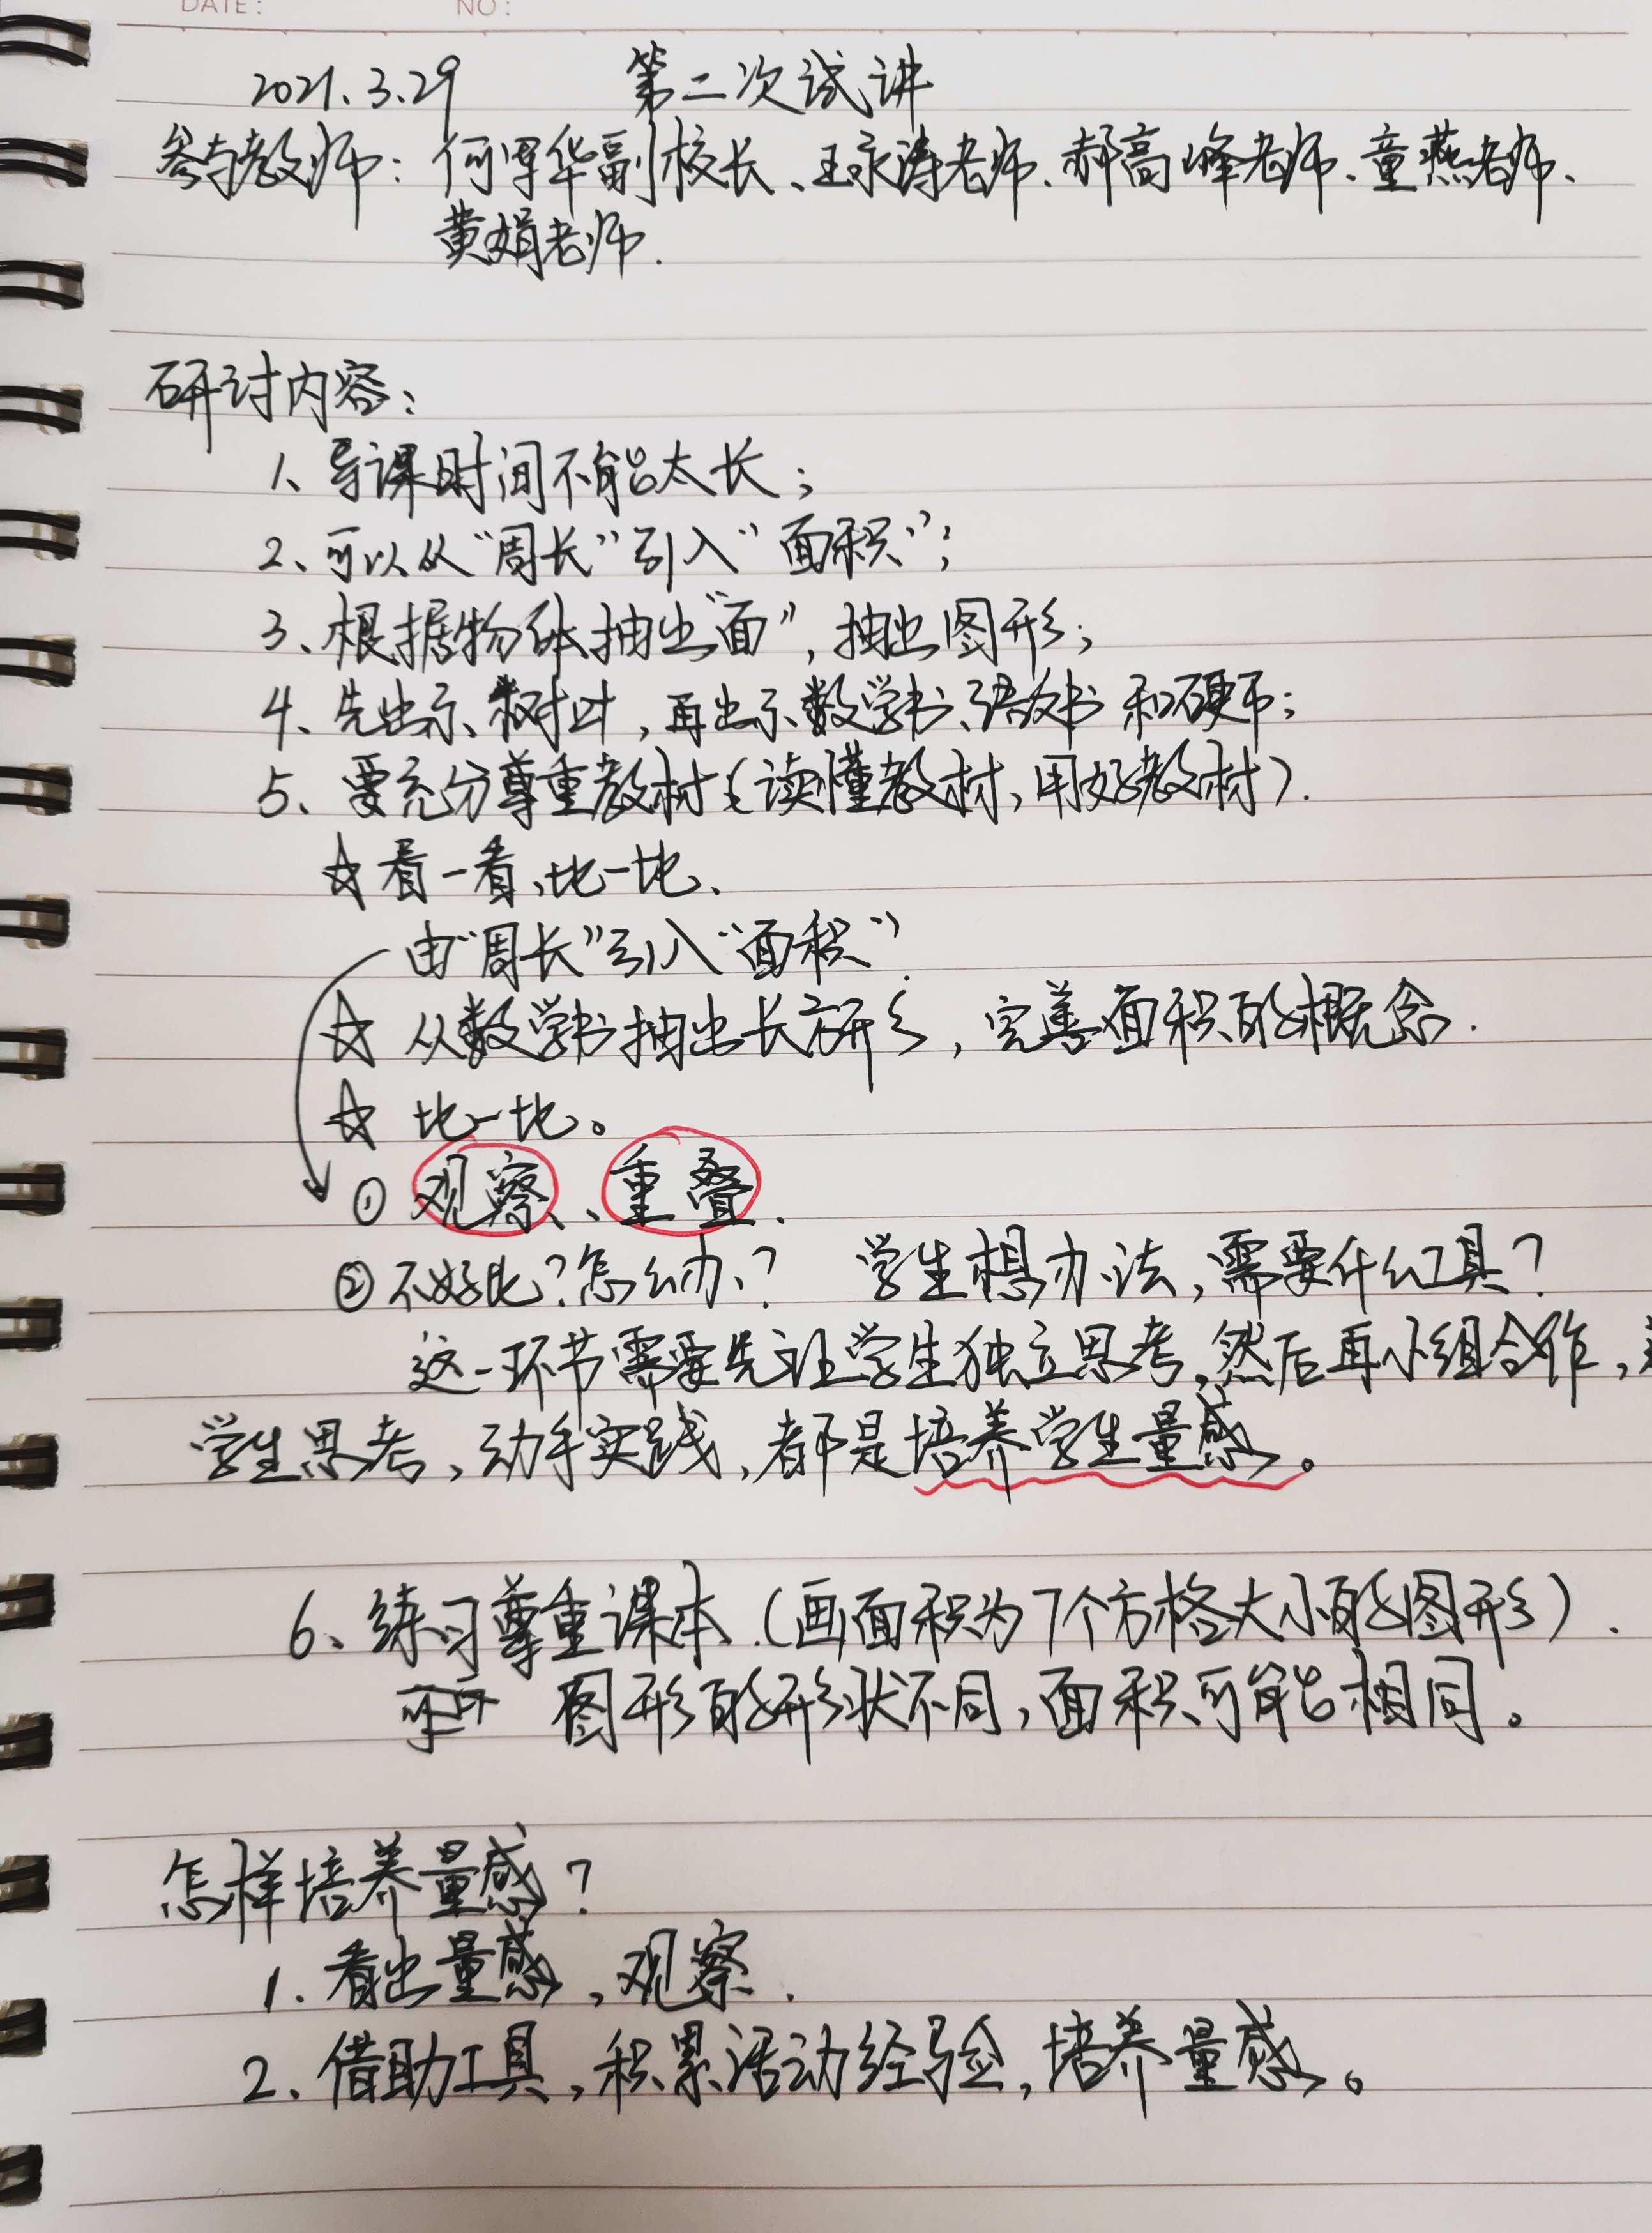 DATE: NO:
2021.3.29 第二次试讲
参与教师: 何军华副校长、王永涛老师、郝高峰老师、童燕老师、
黄娟老师.
研讨内容:
1、导课时间不能太长;
2、可以从“周长”引入“面积”;
3、根据物体抽出“面”, 抽出图形;
4、先出示树叶, 再出示数学书、语文书和硬币;
5、要充分尊重教材(读懂教材, 用好教材).
☆看一看、比一比、
由“周长”引入“面积”.
☆ 从数学书抽出长方形, 完善面积的概念.
☆ 比一比。
① 观察、重叠.
②不好比?怎么办? 学生想办法, 需要什么工具?
这一环节需要先让学生独立思考, 然后再小组合作,
学生思考, 动手实践, 都是培养学生量感。
6、练习尊重课本.(画面积为7个方格大小的图形).
图形的形状不同, 面积可能相同。
怎样培养量感?
1. 看出量感, 观察.
2、借助工具, 积累活动经验, 培养量感。